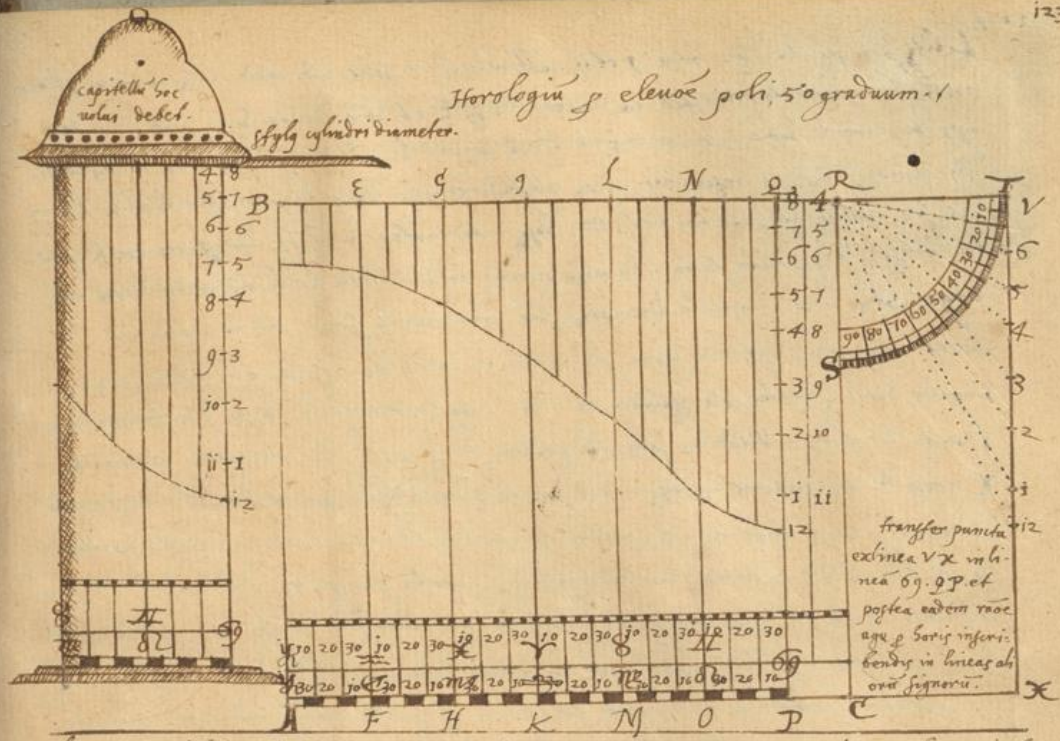 123
capitellū hoc
volui debet.
Horologiū ꝓ elevōe poli, 50 graduum.
stylꝯ cylindri diameter.
4 8
5 7
6 6
7 5
8 4
9 3
10 2
11 1
12
♉ ♊ 69
♌
B E G I L N Q R T V
8 4
7 5
6 6
5 7
4 8
3 9
2 10
1 11
12
10 20 30 40 50 60 70 80 90
S
6
5
4
3
2
1
12
transfer puncta
ex linea V X in li-
neā 69. Q P. et
postea eadem rāōe
age ꝓ horis inscri-
bendis in lineas ali
orū signorū.
10 20 30 10 20 30 10 20 30 10 20 30 10 20 30 10 20 30
♒ ♓ ♈ ♉ ♊ 69
30 20 10 30 20 10 20 10 20 10 20 10 20 10
♍ ♌
A F H K M O P C X